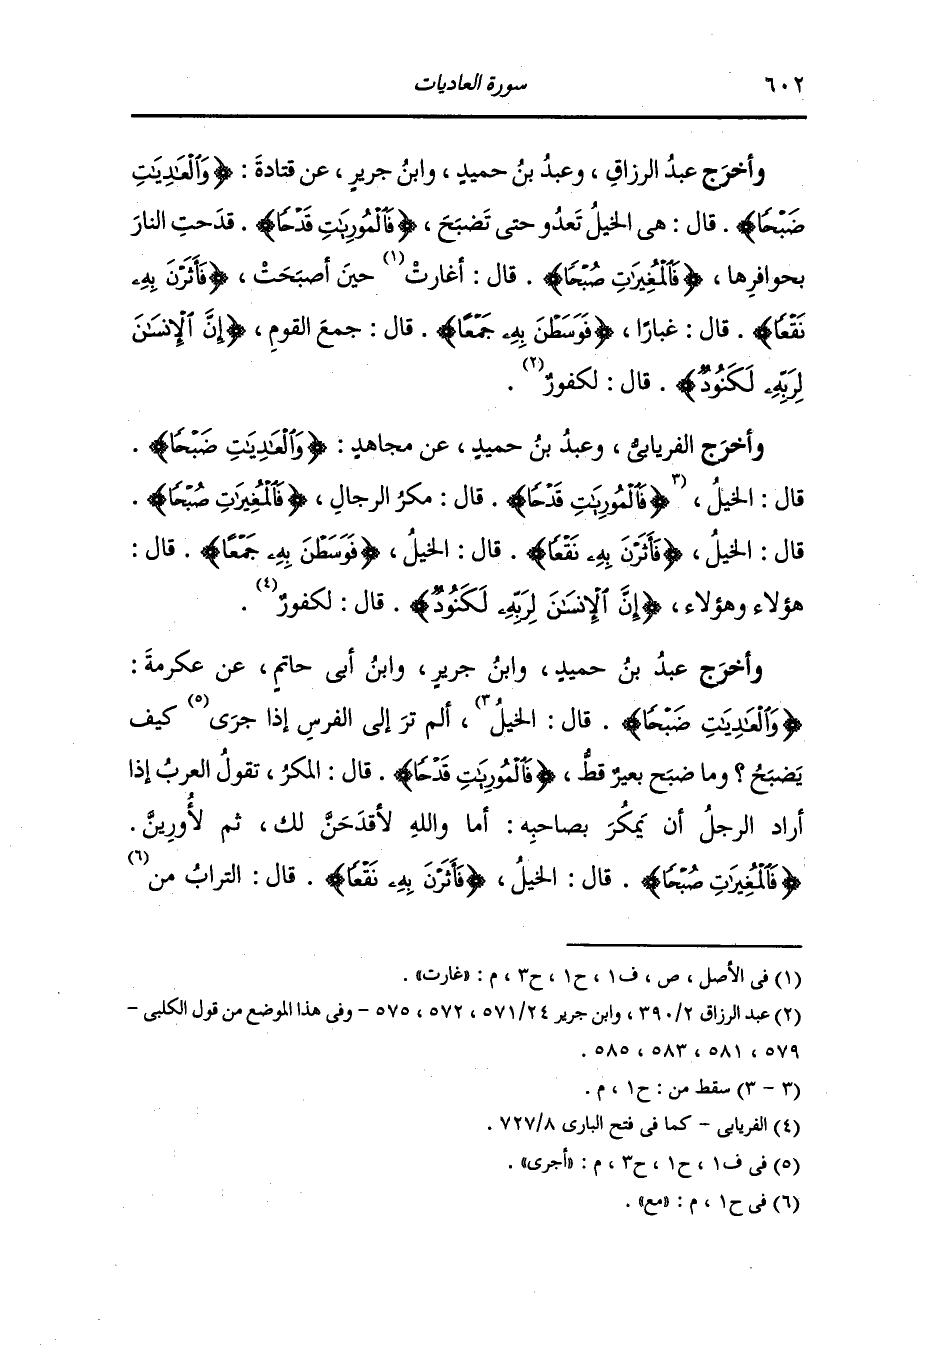 ٦٠٢ سورة العاديات
وأخرَج عبدُ الرزاقِ ، وعبدُ بنُ حميدٍ ، وابنُ جريرٍ ، عن قتادةَ : ﴿وَٱلْعَٰدِيَٰتِ
ضَبْحًا﴾ . قال : هى الخيلُ تَعدُو حتى تَضبَحَ ، ﴿فَٱلْمُورِيَٰتِ قَدْحًا﴾ . قدَحتِ النارَ
بحوافرِها ، ﴿فَٱلْمُغِيرَٰتِ صُبْحًا﴾ . قال : أغارتْ(١) حينَ أصبَحَتْ ، ﴿فَأَثَرْنَ بِهِۦ
نَقْعًا﴾ . قال : غبارًا ، ﴿فَوَسَطْنَ بِهِۦ جَمْعًا﴾ . قال : جمعَ القومِ ، ﴿إِنَّ ٱلْإِنسَٰنَ
لِرَبِّهِۦ لَكَنُودٌ﴾ . قال : لكفورٌ(٢) .
وأخرَج الفريابىُّ ، وعبدُ بنُ حميدٍ ، عن مجاهدٍ : ﴿وَٱلْعَٰدِيَٰتِ ضَبْحًا﴾ .
قال : الخيلُ ، (٣﴿فَٱلْمُورِيَٰتِ قَدْحًا﴾ . قال : مكرُ الرجالِ ، ﴿فَٱلْمُغِيرَٰتِ صُبْحًا﴾ .
قال : الخيلُ ، ﴿فَأَثَرْنَ بِهِۦ نَقْعًا﴾ . قال : الخيلُ ، ﴿فَوَسَطْنَ بِهِۦ جَمْعًا﴾ . قال :
هؤلاء وهؤلاء ، ﴿إِنَّ ٱلْإِنسَٰنَ لِرَبِّهِۦ لَكَنُودٌ﴾ . قال : لكفورٌ(٤) .
وأخرَج عبدُ بنُ حميدٍ ، وابنُ جريرٍ ، وابنُ أبى حاتمٍ ، عن عكرمةَ :
﴿وَٱلْعَٰدِيَٰتِ ضَبْحًا﴾ . قال : الخيلُ٣) ، ألم ترَ إلى الفرسِ إذا جرَى(٥) كيف
يَضبَحُ ؟ وما ضبَح بعيرٌ قطُّ ، ﴿فَٱلْمُورِيَٰتِ قَدْحًا﴾ . قال : المكرُ ، تقولُ العربُ إذا
أراد الرجلُ أن يَمكُرَ بصاحبِه : أما واللهِ لأقدَحَنَّ لك ، ثم لأُورِينَّ .
﴿فَٱلْمُغِيرَٰتِ صُبْحًا﴾ . قال : الخيلُ ، ﴿فَأَثَرْنَ بِهِۦ نَقْعًا﴾ . قال : الترابُ من(٦)
(١) فى الأصل ، ص ، ف١ ، ح١ ، ح٣ ، م : «غارت» .
(٢) عبد الرزاق ٣٩٠/٢ ، وابن جرير ٥٧١/٢٤ ، ٥٧٢ ، ٥٧٥ - وفى هذا الموضع من قول الكلبى -
٥٧٩ ، ٥٨١ ، ٥٨٣ ، ٥٨٥ .
(٣ - ٣) سقط من : ح١ ، م .
(٤) الفريابى - كما فى فتح البارى ٧٢٧/٨ .
(٥) فى ف١ ، ح١ ، ح٣ ، م : «أجرى» .
(٦) فى ح١ ، م : «مع» .